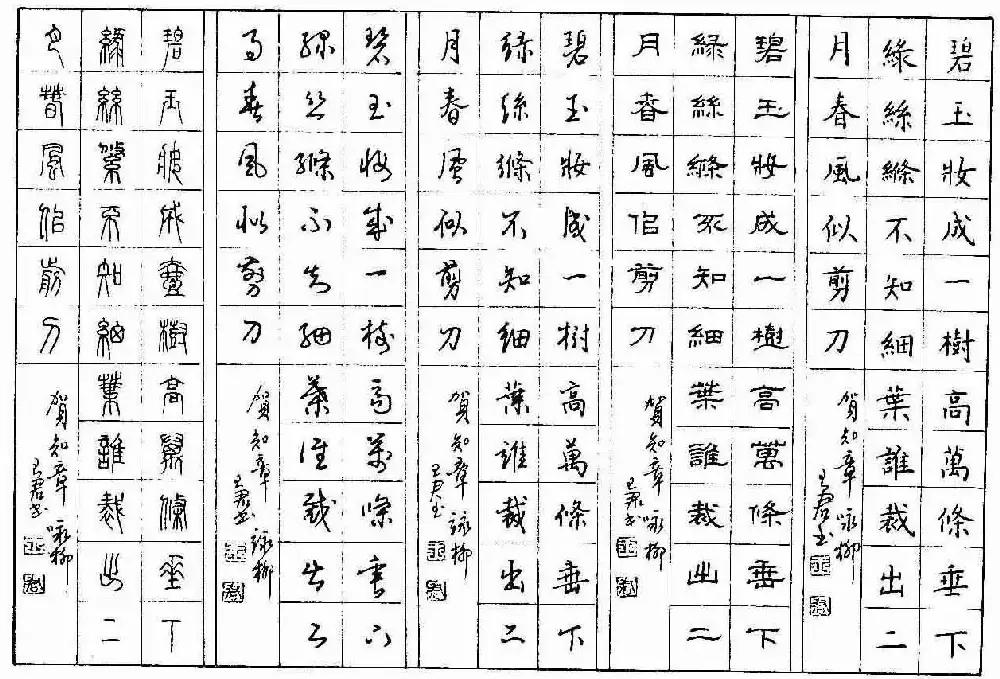 碧玉妝成一樹高萬條垂下
綠絲縧不知細葉誰裁出二
月春風似剪刀
賀知章 咏柳
碧玉妝成一樹高萬條垂下
綠絲縧不知細葉誰裁出二
月春風似剪刀
賀知章 咏柳
碧玉妝成一樹高萬條垂下
綠絲縧不知細葉誰裁出二
月春風似剪刀
賀知章 詠柳
碧玉妝成一樹高萬條垂下
綠絲縧不知細葉誰裁出二
月春風似剪刀
賀知章 詠柳
碧玉妝成一樹高萬條垂下
綠絲縧不知細葉誰裁出二
月春風似剪刀
賀知章 咏柳